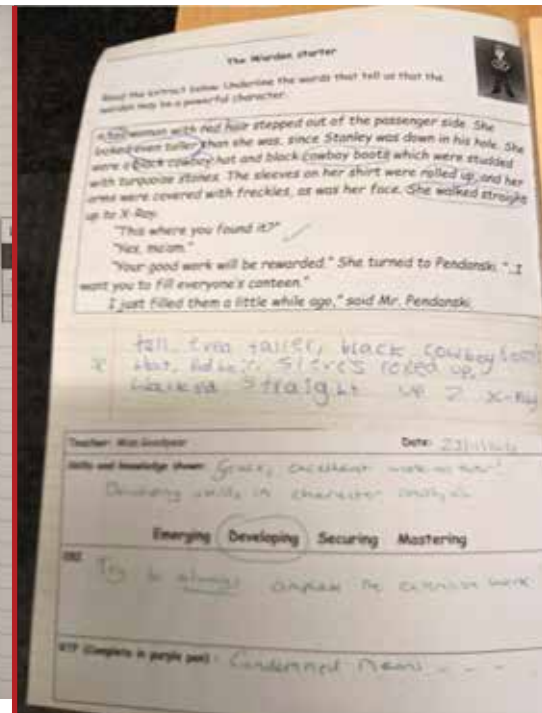 The Warden starter
Read the extract below. Underline the words that tell us that the
warden may be a powerful character.
A tall woman with red hair stepped out of the passenger side. She
looked even taller than she was, since Stanley was down in his hole. She
wore a black cowboy hat and black cowboy boots which were studded
with turquoise stones. The sleeves on her shirt were rolled up, and her
arms were covered with freckles, as was her face. She walked straight
up to X-Ray.
"This where you found it?"
"Yes, ma'am."
"Your good work will be rewarded." She turned to Pendanski. "I
want you to fill everyone's canteen."
I just filled them a little while ago," said Mr. Pendanski.
tall, even taller, black cowboy
hat, up,
walked straight up 2 X-Ray
Teacher: Miss Goodyear Date:
Skills and knowledge shown: excellent work
Developing skills in character analysis
Emerging Developing Securing Mastering
EBI
Try to always complete the extension work
WTP (Complete in purple pen) - Condemned means - - -